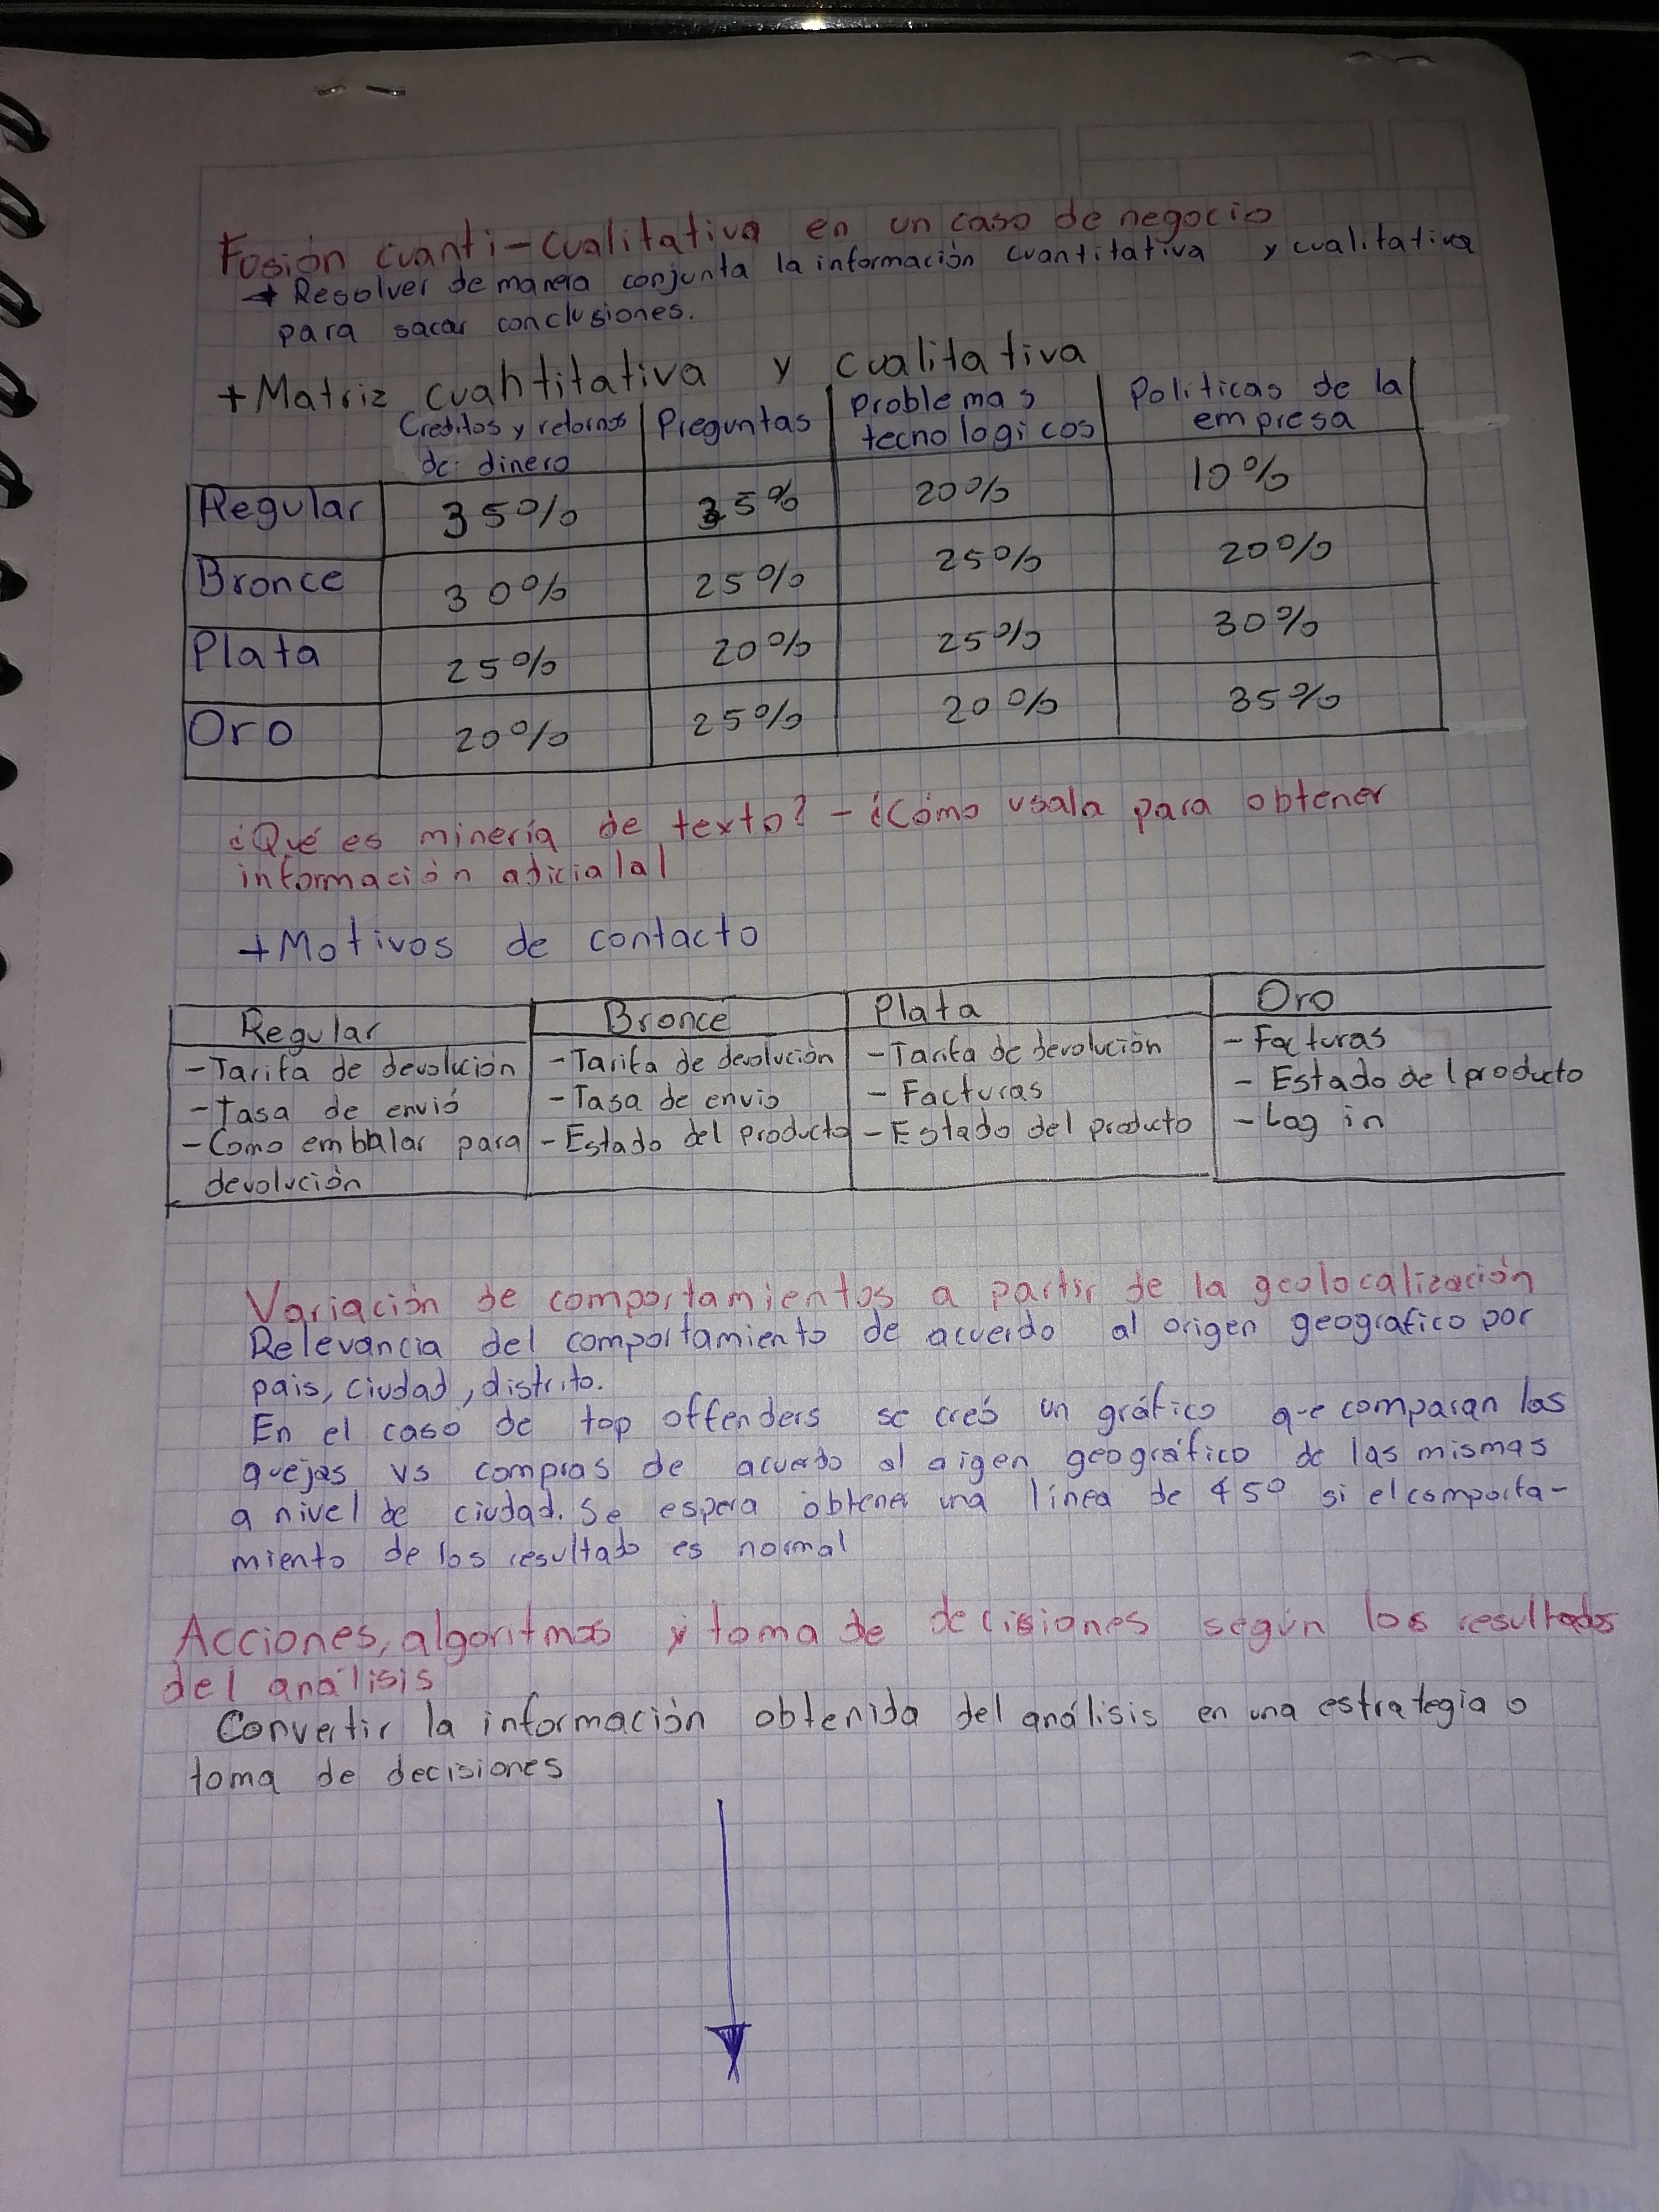 Fusión cuanti-cualitativa en un caso de negocio
→ Resolver de manera conjunta la información cuantitativa y cualitativa
para sacar conclusiones.
+Matriz cuantitativa y cualitativa
Creditos y retornos de dinero | Preguntas | Problemas tecnologicos | Politicas de la empresa
Regular | 35% | 35% | 20% | 10%
Bronce | 30% | 25% | 25% | 20%
Plata | 25% | 20% | 25% | 30%
Oro | 20% | 25% | 20% | 35%
¿Qué es minería de texto? - ¿Cómo usala para obtener
información adicialal
+Motivos de contacto
Regular | Bronce | Plata | Oro
-Tarifa de devolución | -Tarifa de devolución | -Tarifa de devolución | -Facturas
-Tasa de envió | -Tasa de envio | -Facturas | -Estado del producto
-Como embalar para | -Estado del producto | -Estado del producto | -Log in
devolución
Variación de comportamientos a partir de la geolocalización
Relevancia del comportamiento de acuerdo al origen geografico por
pais, ciudad, distrito.
En el caso de top offenders se creó un gráfico que comparan las
quejas vs compras de acuerdo al origen geográfico de las mismas
a nivel de ciudad. Se espera obtener una línea de 45° si el comporta-
miento de los resultado es normal
Acciones, algoritmos y toma de decisiones según los resultados
del análisis
Convertir la información obtenida del análisis en una estrategia o
toma de decisiones
Norma